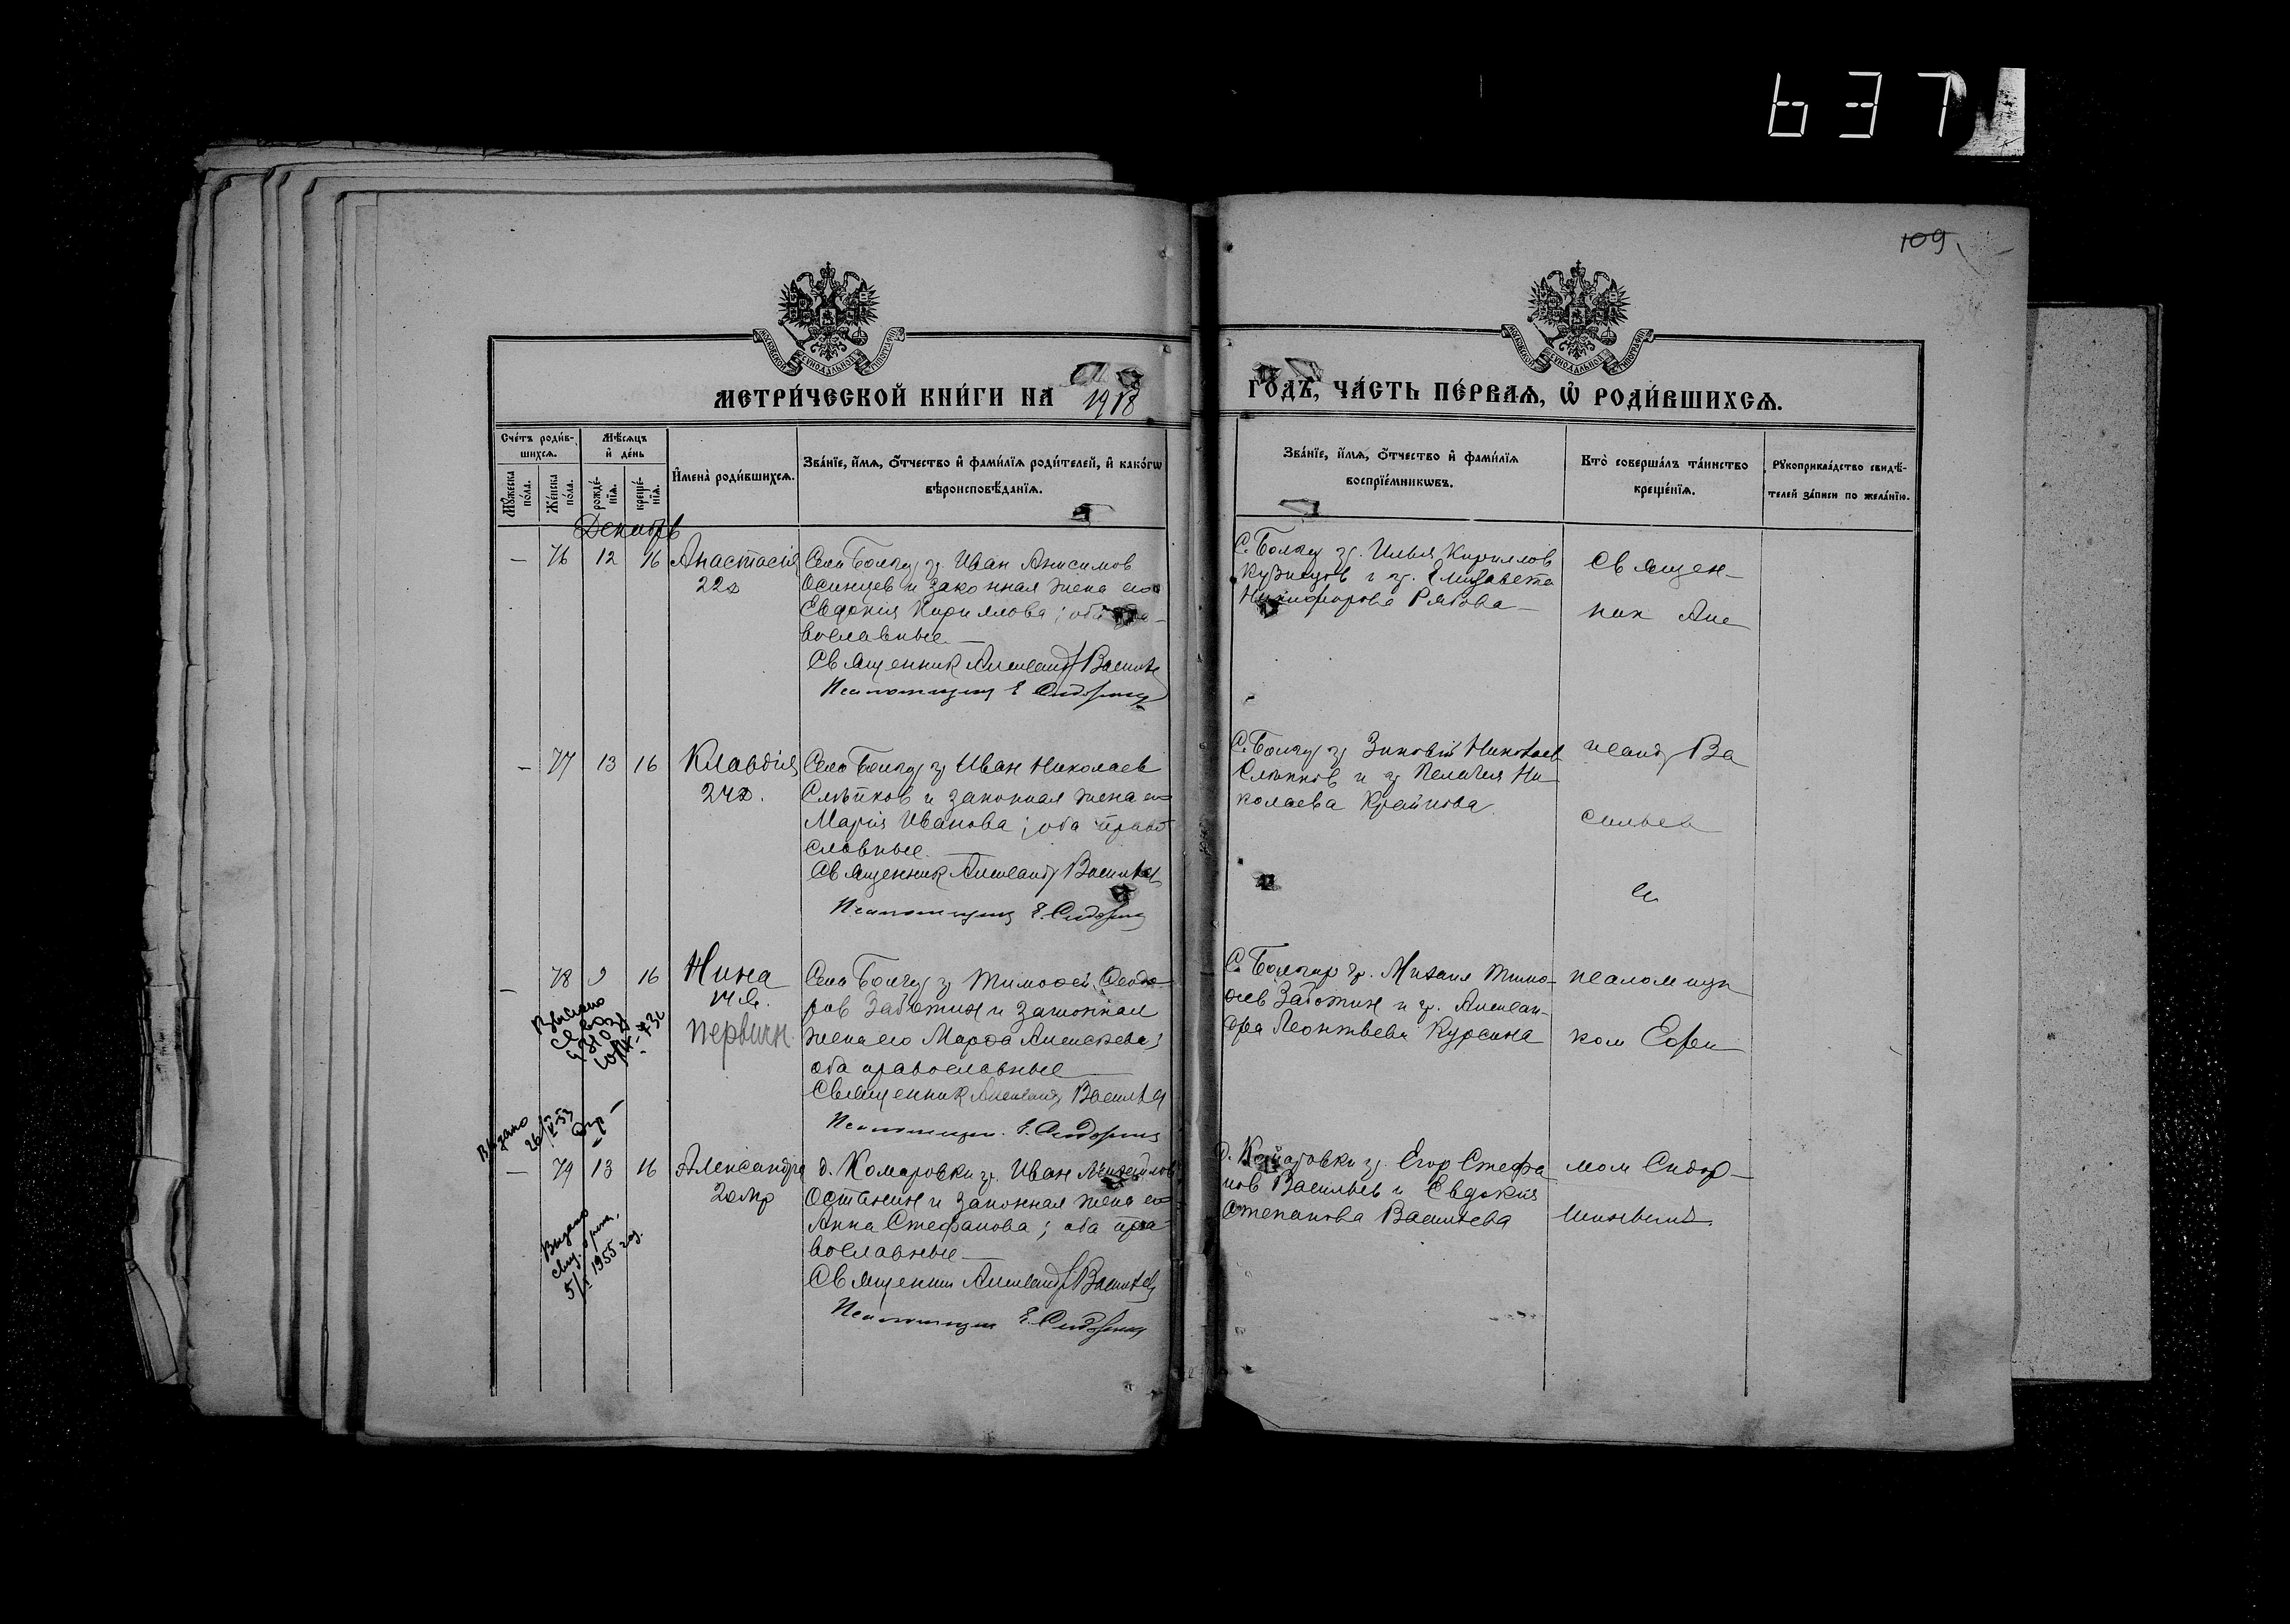 637
109
МОСКОВСКОЙ СѴНОДАЛЬНОЙ ТИПОГРАФІИ
МОСКОВСКОЙ СѴНОДАЛЬНОЙ ТИПОГРАФІИ
МЕТРИ́ЧЕСКОЙ КНИ́ГИ НА 1918
ГО́ДЪ, ЧА́СТЬ ПЕ́РВАѦ, Ѡ҆ РОДИ́ВШИХСѦ.
Сче́тъ роди́в-
шихсѧ.
Мꙋ́жеска
по́ла.
Же́нска
по́ла.
Мѣ́сѧцъ
и҆ де́нь
рожде́-
нїѧ.
креще́-
нїѧ.
И҆мена̀ роди́вшихсѧ.
Зва́нїе, и҆́мѧ, ѻ҆́тчество и҆ фами́лїѧ роди́телей, и҆ како́гѡ
вѣроисповѣ́данїѧ.
Зва́нїе, и҆́мѧ, ѻ҆́тчество и҆ фами́лїѧ
воспрїе́мникѡвъ.
Кто̀ соверша́лъ та́инство
креще́нїѧ.
Рꙋкоприкла́дство свидѣ́-
телей за́писи по жела́нїю.
Декабрь
— 76 12 16 Анастасія
22д
Села Болгар гр. Иван Анисимов
Осинцев и законная жена его
Евдокія Кириллова; оба пра-
вославные.—
Священник Александр Васильев
Псаломщик Е. Сидорин
С. Болгар гр. Илья Кириллов
Кузнецов и гр. Елизавета
Никифорова Рябова—
Священ-
ник Але
— 77 13 16 Клавдія
24д.
Села Болгар гр Иван Николаев
Слѣпков и законная жена его
Марія Иванова; оба право
славные.—
Священник Александр Васильев
Псаломщик Е. Сидорин
С. Болгар гр Зиновій Николаев
Слѣпков и гр Пелагея Ни-
колаева Крайнова.
ксандр Ва
сильев
с
— 78 9 16 Нина
14 д.
первич.
Выдано
Села Болгар гр Тимофей Феодо-
ров Заботин и законная
жена его Марфа Алексеева;
оба православные—
Священник Александр Васильев
Псаломщик. Е. Сидорин
С. Болгар гр. Михаил Тимо-
феев Заботин и гр. Алексан-
дра Леонтьева Курсина
псаломщи
ком Ефи
Выдано
26/V-53
— 79 13 16 Александра
д. Комаровки гр. Иван Михайлов
Останин и законная жена его
Анна Стефанова; оба пра-
вославные—
Священник Александр Васильев
Псаломщик Е. Сидорин
д. Комаровки гр. Егор Стефа
нов Васильев и Евдокия
Степанова Васильева
мом Сидор—
Выдано
1955 год.